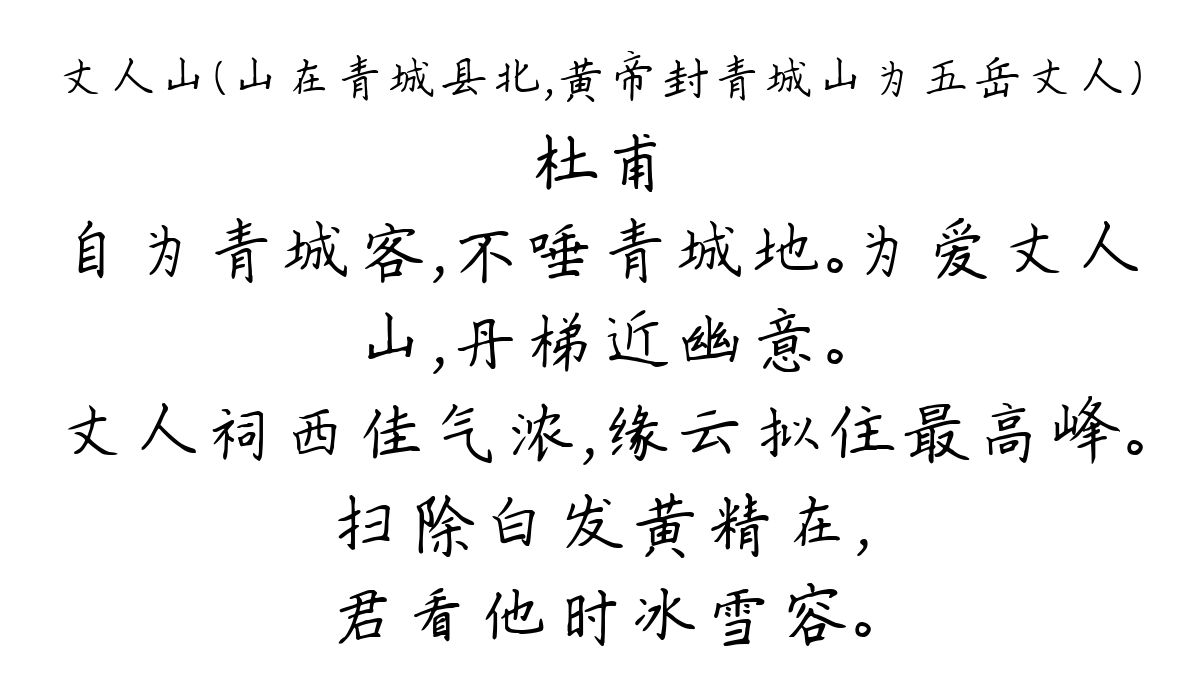 丈人山(山在青城县北,黄帝封青城山为五岳丈人)
杜甫
自为青城客,不唾青城地。为爱丈人
山,丹梯近幽意。
丈人祠西佳气浓,缘云拟住最高峰。
扫除白发黄精在,
君看他时冰雪容。